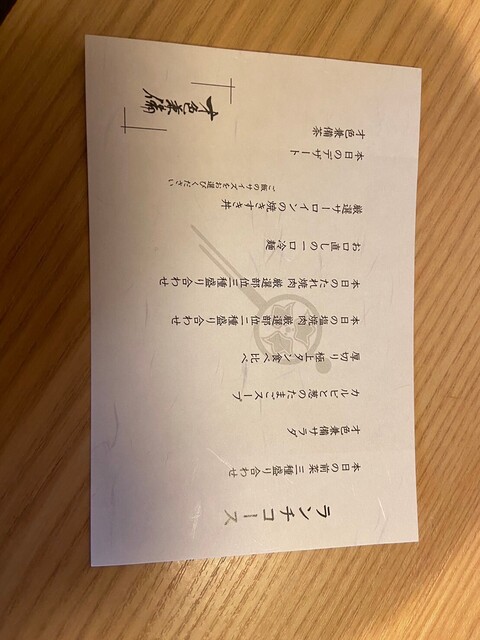 ランチコース
本日の前菜三種盛り合わせ
才色兼備サラダ
カルビと葱のたまごスープ
厚切り極上タン食べ比べ
本日の塩焼肉厳選部位二種盛り合わせ
本日のたれ焼肉厳選部位三種盛り合わせ
お口直しの一口冷麺
厳選サーロインの焼きすき丼
ご飯のサイズをお選びください
本日のデザート
才色兼備茶
才色兼備